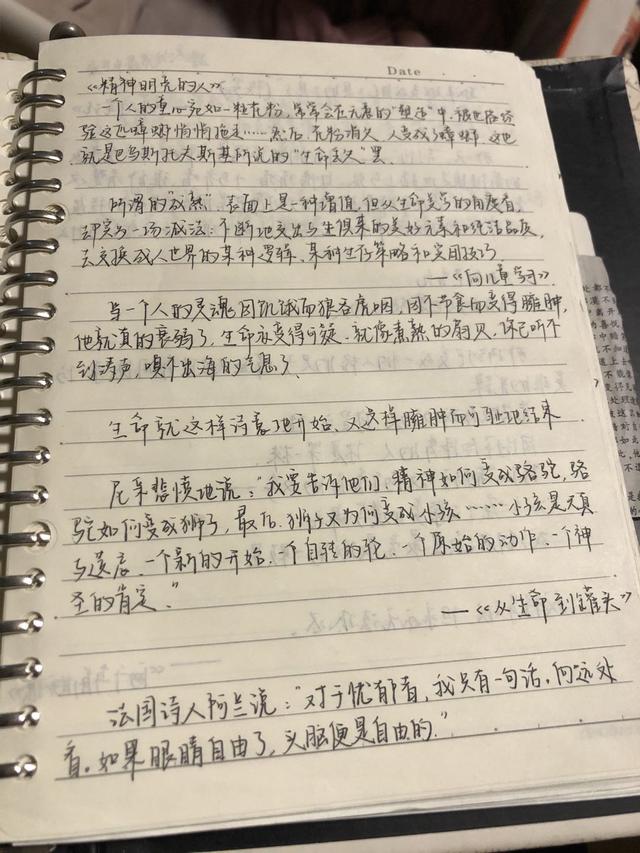 Date
《精神明亮的人》
一个人的童心宛如一粒花粉，常常会在无意的"塑造"中，被世俗经
验这匹蟑螂悄悄拖走……然后，花粉消失，人变成了蟑螂，这也
就是巴乌斯托夫斯基所说的"生命丢失"罢
所谓的"成熟"，表面上是一种增值，但从生命美学的角度看，
却实为一场减法：不断地交出与生俱来的美好元素和纯洁品质，
去交换成人世界的某种逻辑、某种生存策略和实用技巧
——《向儿童学习》
当一个人的灵魂因饥饿而狼吞虎咽，因不节食而变得臃肿，
他就真的衰弱了，生命亦变得可疑，就像煮熟的扇贝，你已听不
到涛声，嗅不出海的气息了
生命就这样诗意地开始，又这样臃肿而可耻地结束
尼采悲愤地说："我要告诉他们，精神如何变成骆驼，骆
驼如何变成狮子，最后，狮子又为何变成小孩……小孩是天真
与遗忘，一个新的开始，一个自转的轮，一个原始的动作，一个神
圣的肯定。"
——《从生命到罐头》
法国诗人阿兰说："对于忧郁者，我只有一句话，向远处
看。如果眼睛自由了，头脑便是自由的."